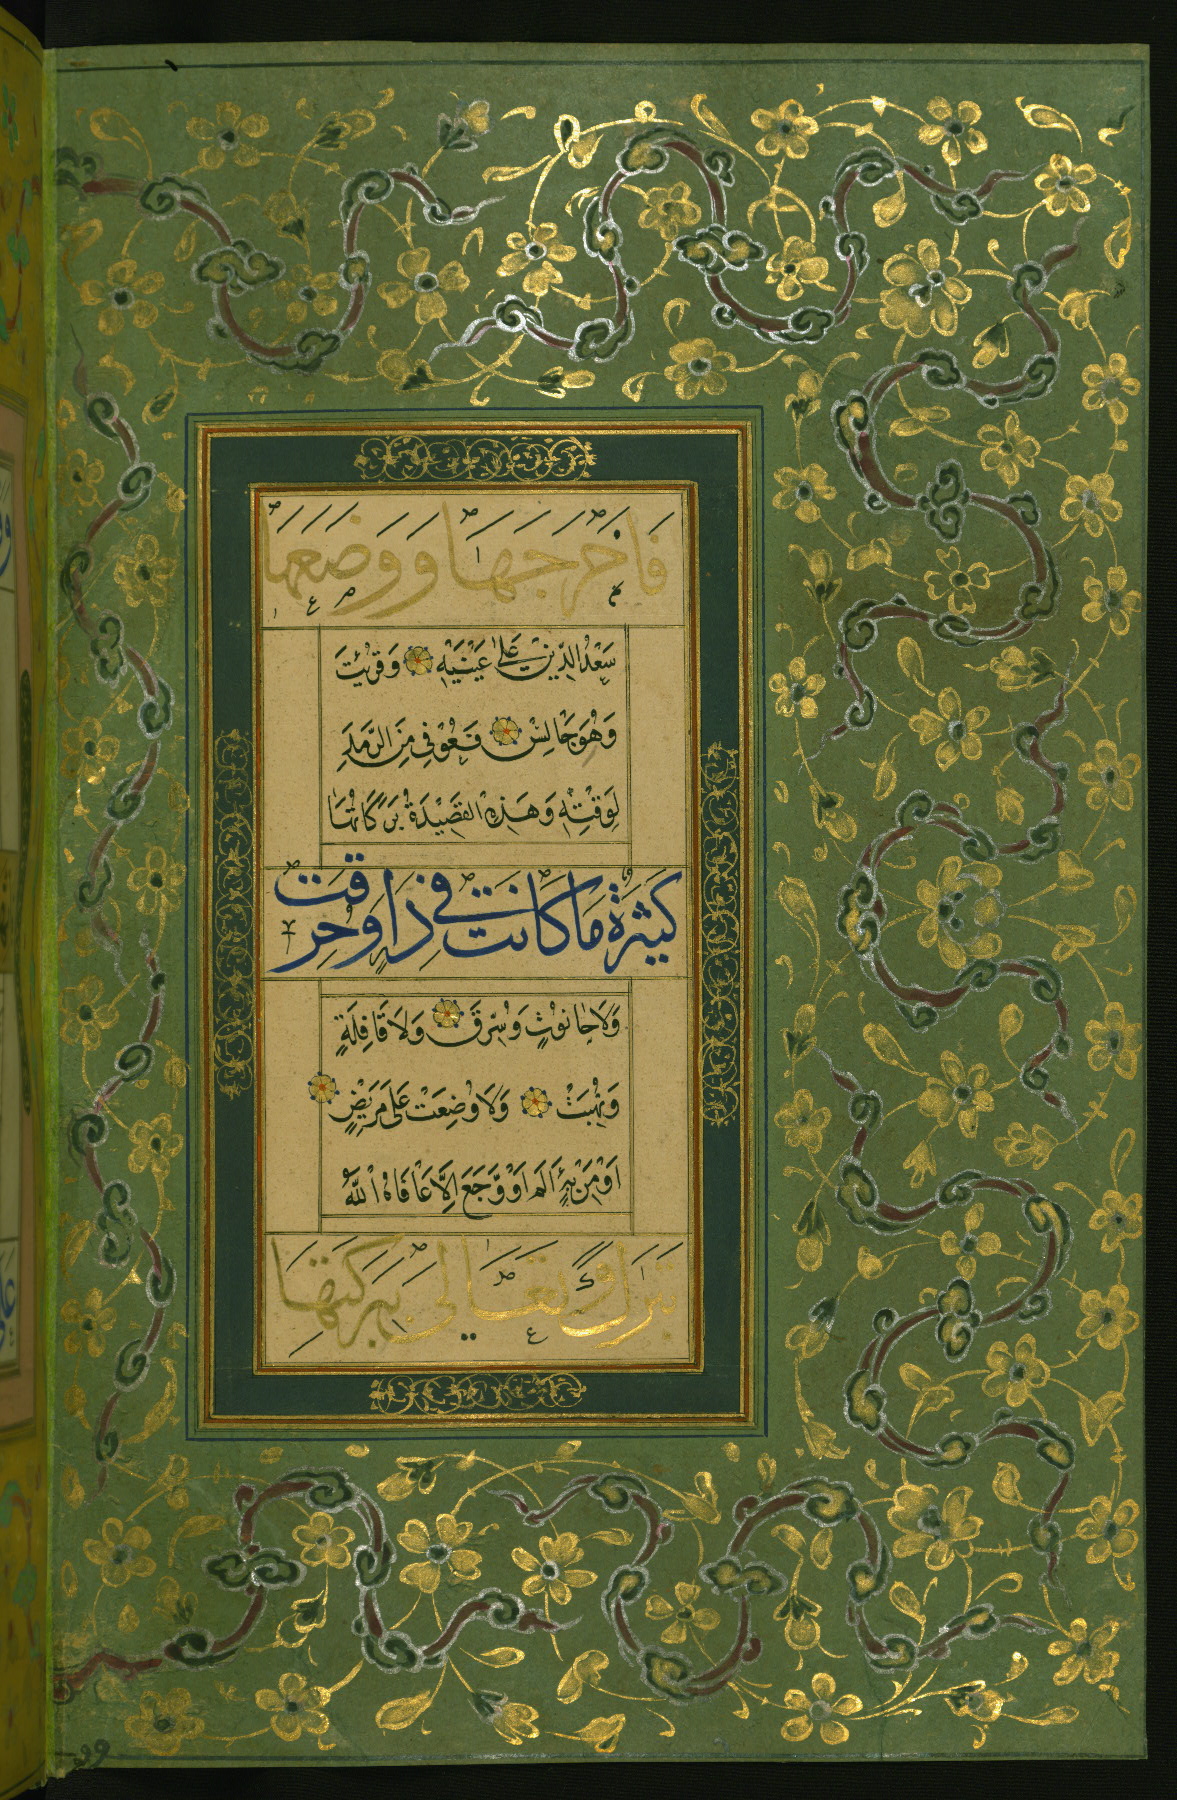 فَاَخْرَجَهَا وَوَضَعَهَا
سَعْدُ الدِّينِ عَلىٰ عَيْنَيْهِ وَقُرِئَتْ
وَهُوَ جَالِسٌ فَعُوْفِيَ مِنَ الرَّمَدِ
لِوَقْتِهِ وَهَذِهِ القَصِيْدَةُ بَرَكَاتُهَا
كَثِيْرَةٌ مَا كَانَتْ فِي دَارٍ وَحُرِقَتْ
وَلَا حَانُوْتٍ وَسُرِقَ وَلَا قَافِلَةٍ
وَنُهِبَتْ وَلَا وُضِعَتْ عَلَى مَرِيْضٍ
اَوْ مَنْ بِهِ اَلَمٌ اَوْ وَجَعٌ اِلَّا عَافَاهُ اللّٰهُ
وَتَعَالٰى بِبَرَكَتِهَا
۹۹